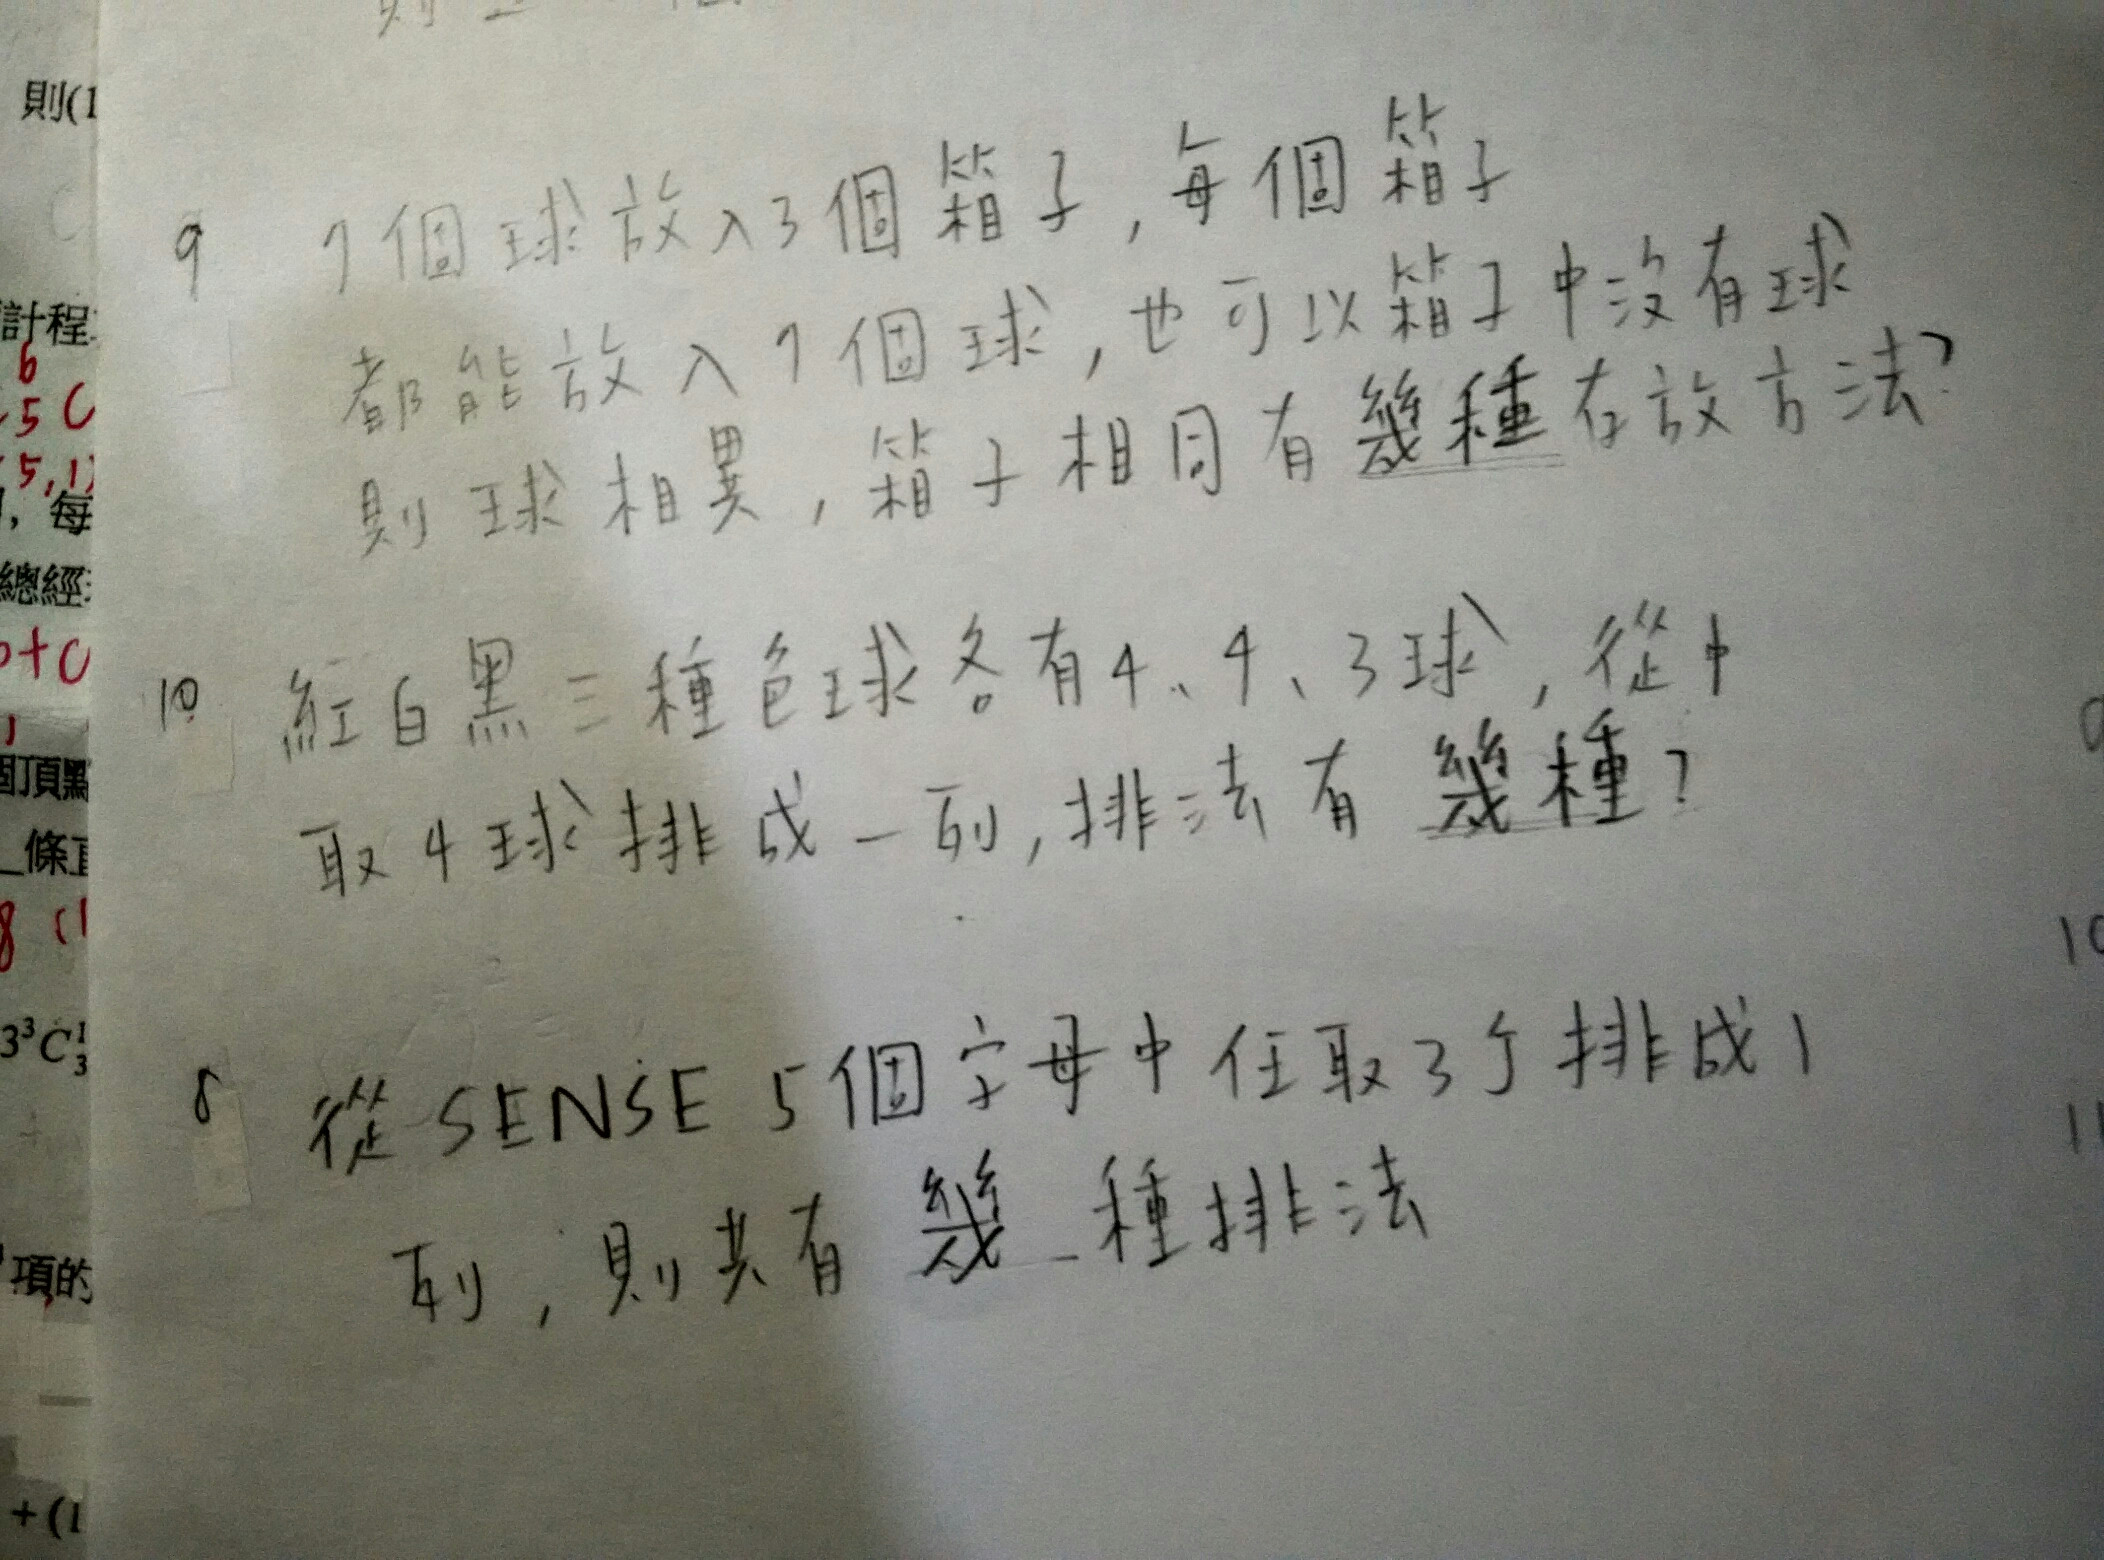 則(1
計程
6
5 C
5,1)
, 每
總經
+C
個頂點
條直
8 (1
3³C
項的
+(1
9 7個球放入3個箱子,每個箱子
都能放入7個球,也可以箱子中沒有球
則球相異,箱子相同有幾種存放方法?
10 紅白黑三種色球各有4、4、3球,從中
取4球排成一列,排法有幾種?
8 從SENSE 5個字母中任取3个排成1
列,則共有幾種排法
10
11